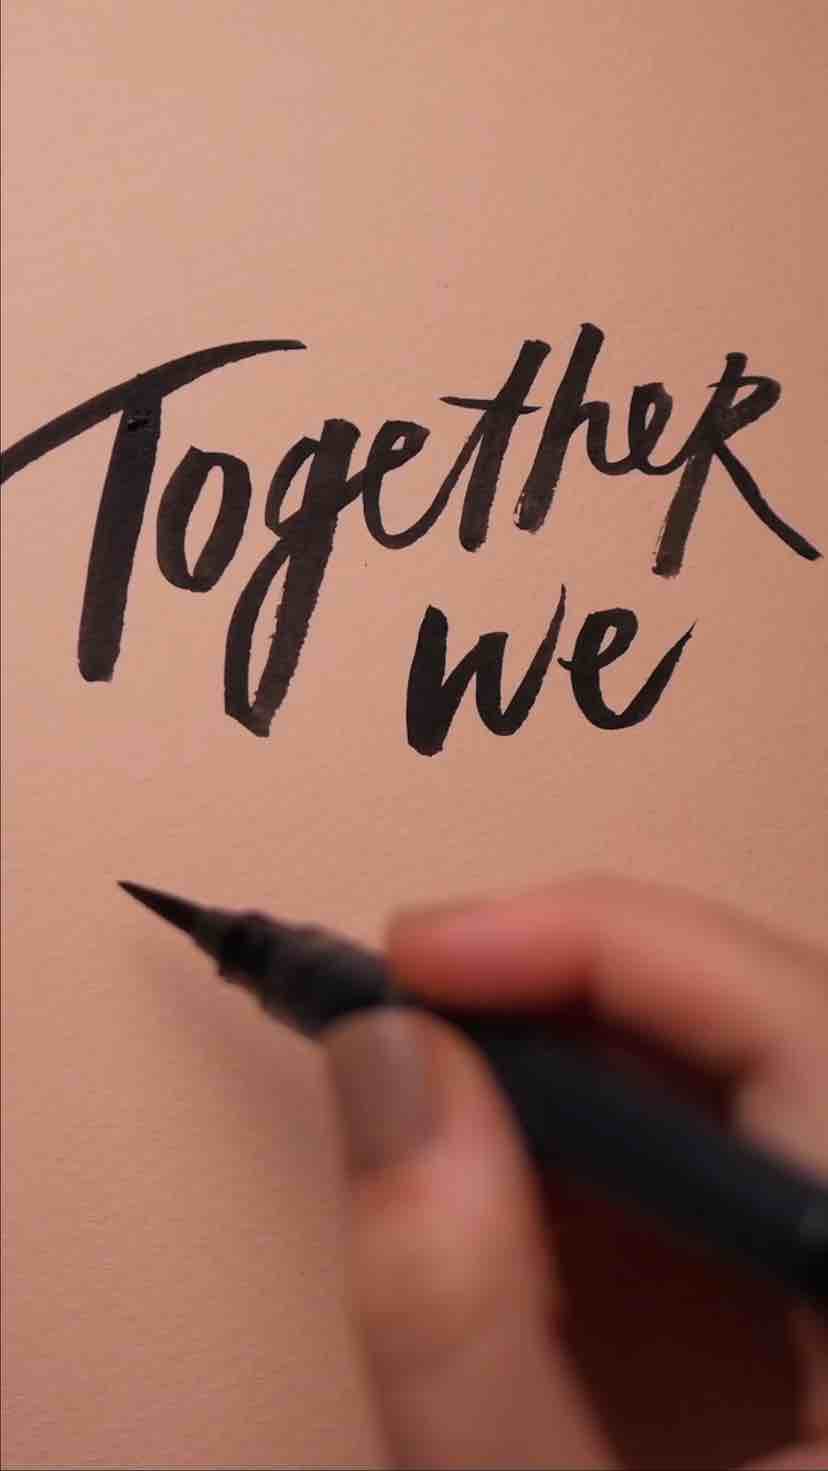 Together
we